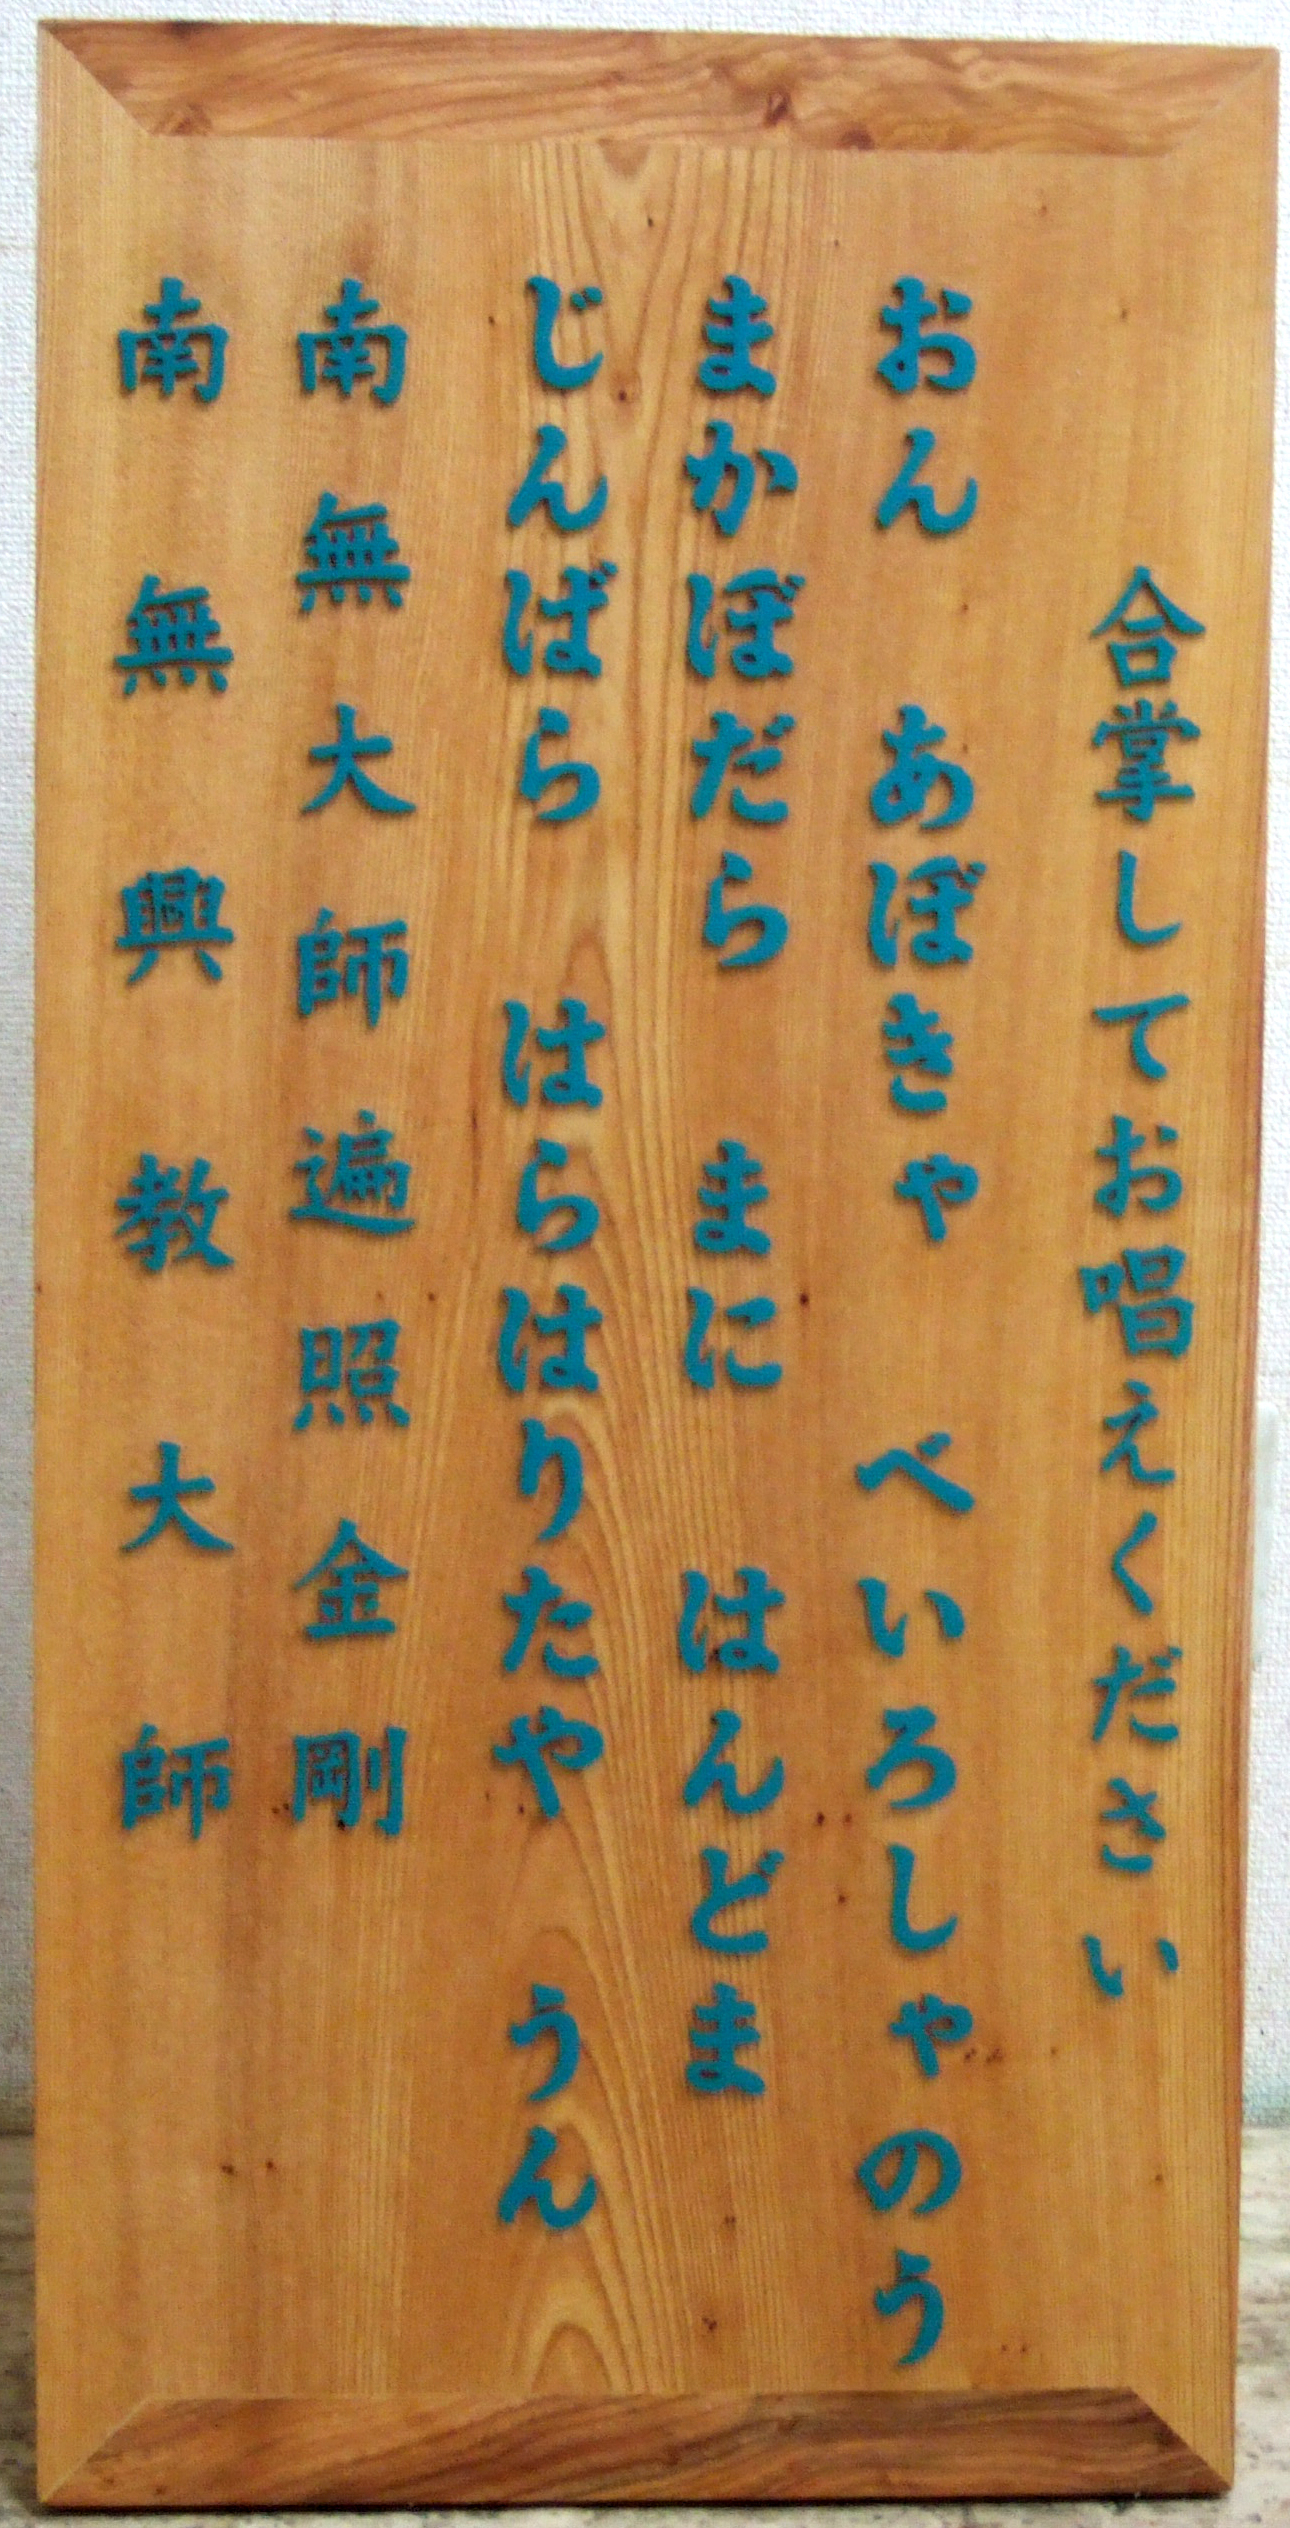 合掌してお唱えください
おん　あぼきゃ　べいろしゃのう
まかぼだら　まに　はんどま
じんばら　はらはりたや　うん
南無大師遍照金剛
南無興教大師